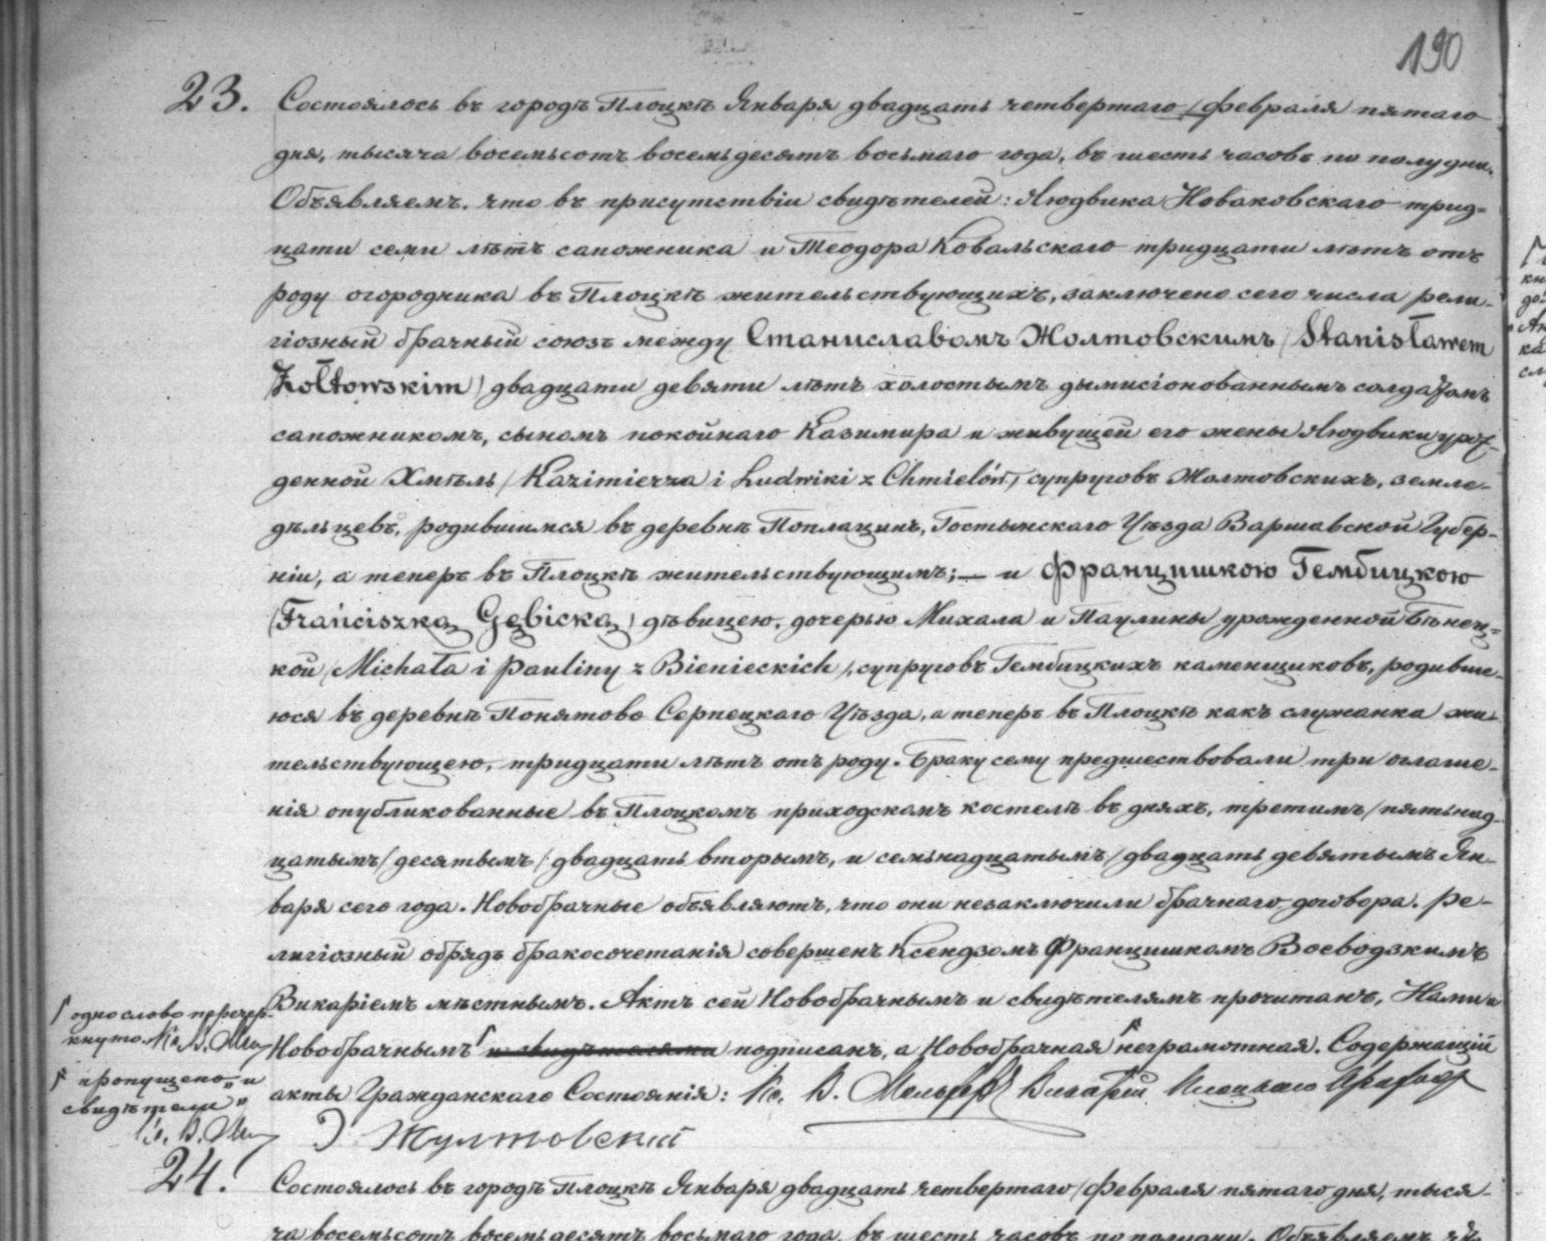 190
23. Состоялось въ городѣ Плоцкѣ Января двадцать четвертаго / Февраля пятаго
дня, тысяча восемьсотъ восемьдесятъ восьмаго года, въ шесть часовъ по полудни.
Объявляемъ, что въ присутствіи свидѣтелей: Людвика Новаковскаго трид-
цати семи лѣтъ сапожника и Теодора Ковальскаго тридцати лѣтъ отъ
роду огородника въ Плоцкѣ жительствующихъ, заключено сего числа рели-
гіозный брачный союзъ между Станиславомъ Жолтовскимъ / Stanisławem
Żołtowskim / двадцати девяти лѣтъ холостымъ дымисіонованнымъ солдатомъ
сапожникомъ, сыномъ покойнаго Казимира и живущей его жены Людвики урож-
денной Хмѣль / Kazimierza i Ludwiki z Chmielów / супруговъ Жолтовскихъ, земле-
дѣльцевъ, родившимся въ деревнѣ Поплацинъ, Гостынскаго Уѣзда Варшавской Губер-
ніи, а теперь въ Плоцкѣ жительствующимъ; — и Францишкою Гембицкою
/ Franciszką Gębicką / дѣвицею, дочерью Михала и Паулины урожденной Бѣнец-
кой / Michała i Pauliny z Bienieckich /, супруговъ Гембицкихъ каменщиковъ, родивше-
юся въ деревнѣ Понятово Серпецкаго Уѣзда, а теперь въ Плоцкѣ какъ служанка жи-
тельствующею, тридцати лѣтъ отъ роду. Браку сему предшествовали три оглаше-
нія опубликованные въ Плоцкомъ приходскомъ костелѣ въ дняхъ, третимъ / пятьнад-
цатымъ / десятымъ / двадцать вторымъ, и семьнадцатымъ / двадцать девятымъ Ян-
варя сего года. Новобрачные объявляютъ, что они незаключили брачнаго договора. Ре-
лигіозный обрядъ бракосочетанія совершенъ Ксендзомъ Францишкомъ Воеводзкимъ
Викаріемъ мѣстнымъ. Актъ сей Новобрачнымъ и свидѣтелямъ прочитанъ, Нами и
Новобрачнымъ и свидѣтелями подписанъ, а Новобрачная неграмотная. Содержащій
акты Гражданскаго Состоянія: Кс. В. Викарій Плоцкаго
Жултовскій
одно слово перечер-
кнуто Кс. В.
пропущено „и
свидѣтели"
24. Состоялось въ городѣ Плоцкѣ Января двадцать четвертаго / Февраля пятаго дня, тыся-
ча восемьсотъ восемьдесятъ восьмаго года, въ шесть часовъ по полудни. Объявляемъ